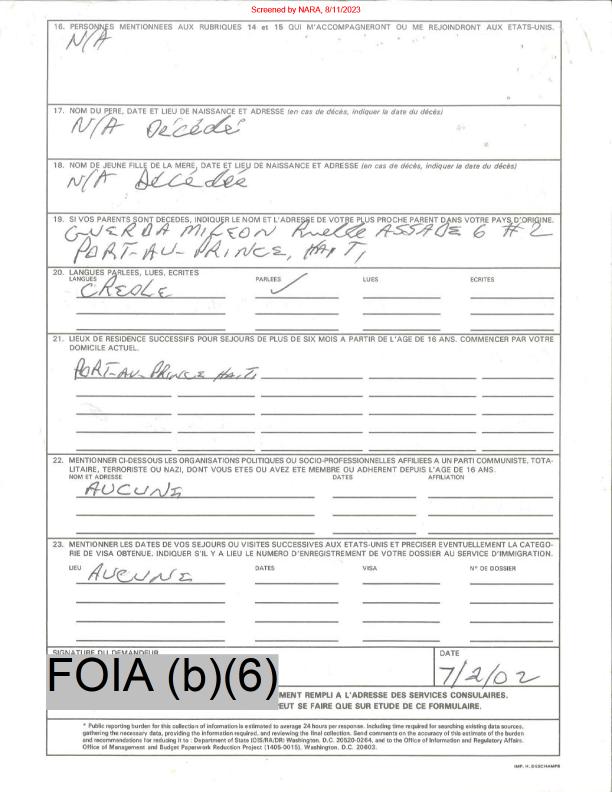 Screened by NARA, 8/11/2023
16. PERSONNES MENTIONNEES AUX RUBRIQUES 14 et 15 QUI M'ACCOMPAGNERONT OU ME REJOINDRONT AUX ETATS-UNIS.
N/A
17. NOM DU PERE, DATE ET LIEU DE NAISSANCE ET ADRESSE (en cas de décès, indiquer la date du décès)
N/A Décédé
18. NOM DE JEUNE FILLE DE LA MERE, DATE ET LIEU DE NAISSANCE ET ADRESSE (en cas de décès, indiquer la date du décès)
N/A Décédée
19. SI VOS PARENTS SONT DECEDES, INDIQUER LE NOM ET L'ADRESSE DE VOTRE PLUS PROCHE PARENT DANS VOTRE PAYS D'ORIGINE.
GUERDA Ruelle #2
PORT-AU-PRINCE, HAITI
20. LANGUES PARLEES, LUES, ECRITES
LANGUES PARLEES LUES ECRITES
CREOLE ✓
21. LIEUX DE RESIDENCE SUCCESSIFS POUR SEJOURS DE PLUS DE SIX MOIS A PARTIR DE L'AGE DE 16 ANS. COMMENCER PAR VOTRE
DOMICILE ACTUEL.
PORT-AU-PRINCE HAITI
22. MENTIONNER CI-DESSOUS LES ORGANISATIONS POLITIQUES OU SOCIO-PROFESSIONNELLES AFFILIEES A UN PARTI COMMUNISTE, TOTA-
LITAIRE, TERRORISTE OU NAZI, DONT VOUS ETES OU AVEZ ETE MEMBRE OU ADHERENT DEPUIS L'AGE DE 16 ANS.
NOM ET ADRESSE DATES AFFILIATION
AUCUNE
23. MENTIONNER LES DATES DE VOS SEJOURS OU VISITES SUCCESSIVES AUX ETATS-UNIS ET PRECISER EVENTUELLEMENT LA CATEGO-
RIE DE VISA OBTENUE. INDIQUER S'IL Y A LIEU LE NUMERO D'ENREGISTREMENT DE VOTRE DOSSIER AU SERVICE D'IMMIGRATION.
LIEU DATES VISA N° DE DOSSIER
AUCUNE
SIGNATURE DU DEMANDEUR DATE
FOIA (b)(6) 7/2/02
MENT REMPLI A L'ADRESSE DES SERVICES CONSULAIRES.
PEUT SE FAIRE QUE SUR ETUDE DE CE FORMULAIRE.
* Public reporting burden for this collection of information is estimated to average 24 hours per response, including time required for searching existing data sources,
gathering the necessary data, providing the information required, and reviewing the final collection. Send comments on the accuracy of this estimate of the burden
and recommendations for reducing it to : Department of State (OIS/RA/DR) Washington, D.C. 20520-0264, and to the Office of Information and Regulatory Affairs.
Office of Management and Budget Paperwork Reduction Project (1405-0015). Washington, D.C. 20603.
IMP. H. DESCHAMPS